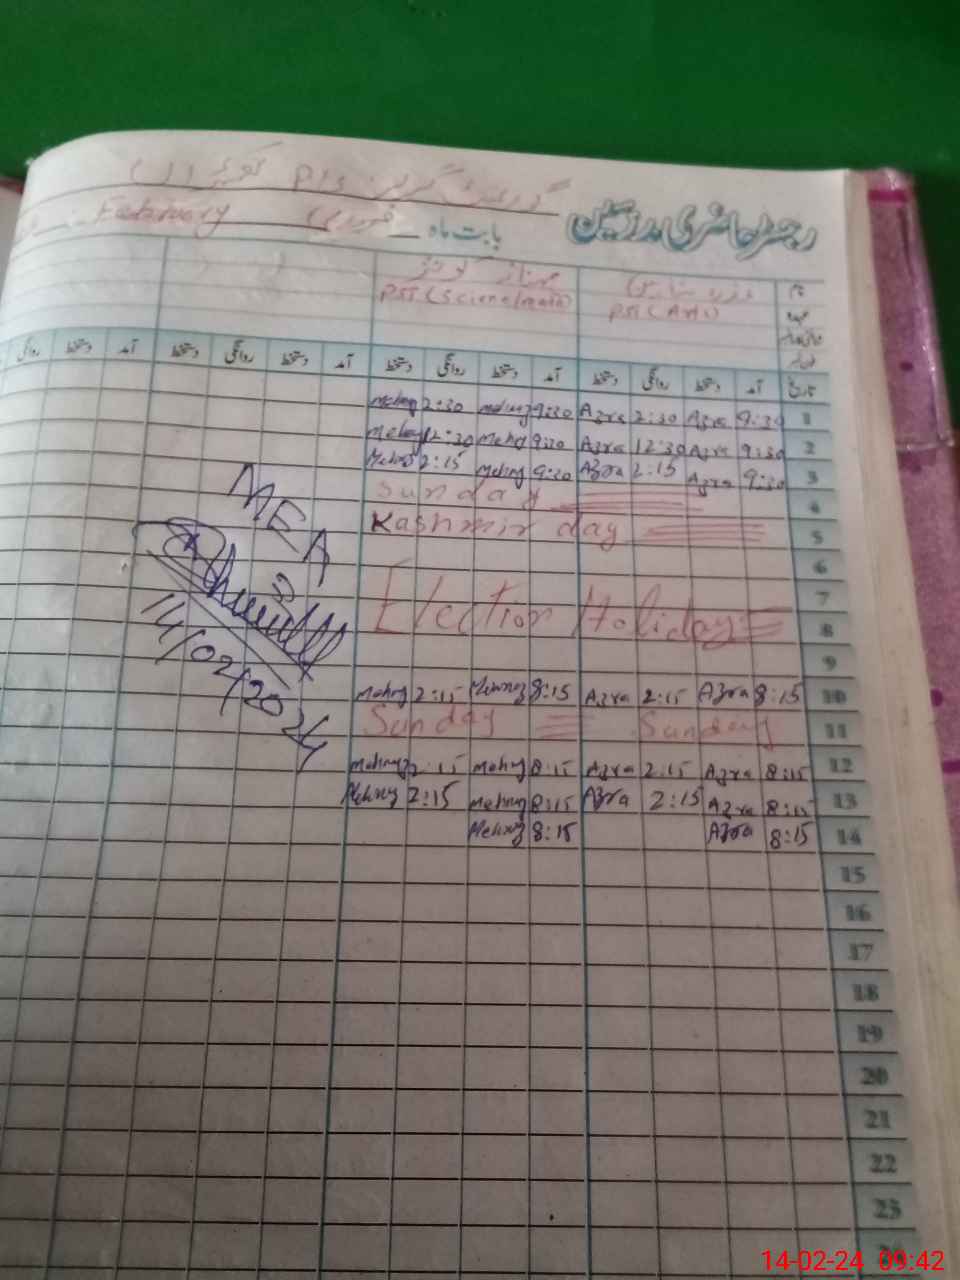 گورنمنٹ گرلز P/S
رجسٹر حاضری مدرسین
بابت ماہ فروری February
نام
عہدہ
مہناز کوثر
PST (Science/math)
PST (Arts)
تاریخ آمد دستخط روانگی دستخط آمد دستخط روانگی دستخط آمد دستخط روانگی دستخط آمد دستخط روانگی
1 9:30 Azra 2:30 Azra 9:30 Mehnaz 2:30 Mehnaz
2 9:30 Azra 12:30 Azra 9:30 Mehnaz 12:30 Mehnaz
3 9:30 Azra 2:15 Azra 9:30 Mehnaz 2:15 Mehnaz
4 Sunday
5 Kashmir day
6
7 Election Holiday
8
9
10 8:15 Azra 2:15 Azra 8:15 Mehnaz 2:15 Mehnaz
11 Sunday Sunday
12 8:15 Azra 2:15 Azra 8:15 Mehnaz 2:15 Mehnaz
13 8:15 Azra 2:15 Azra 8:15 Mehnaz 2:15 Mehnaz
14 8:15 Azra 8:15 Mehnaz
15
16
17
18
19
20
21
22
23
24
MEA
14/02/2024
14-02-24 09:42